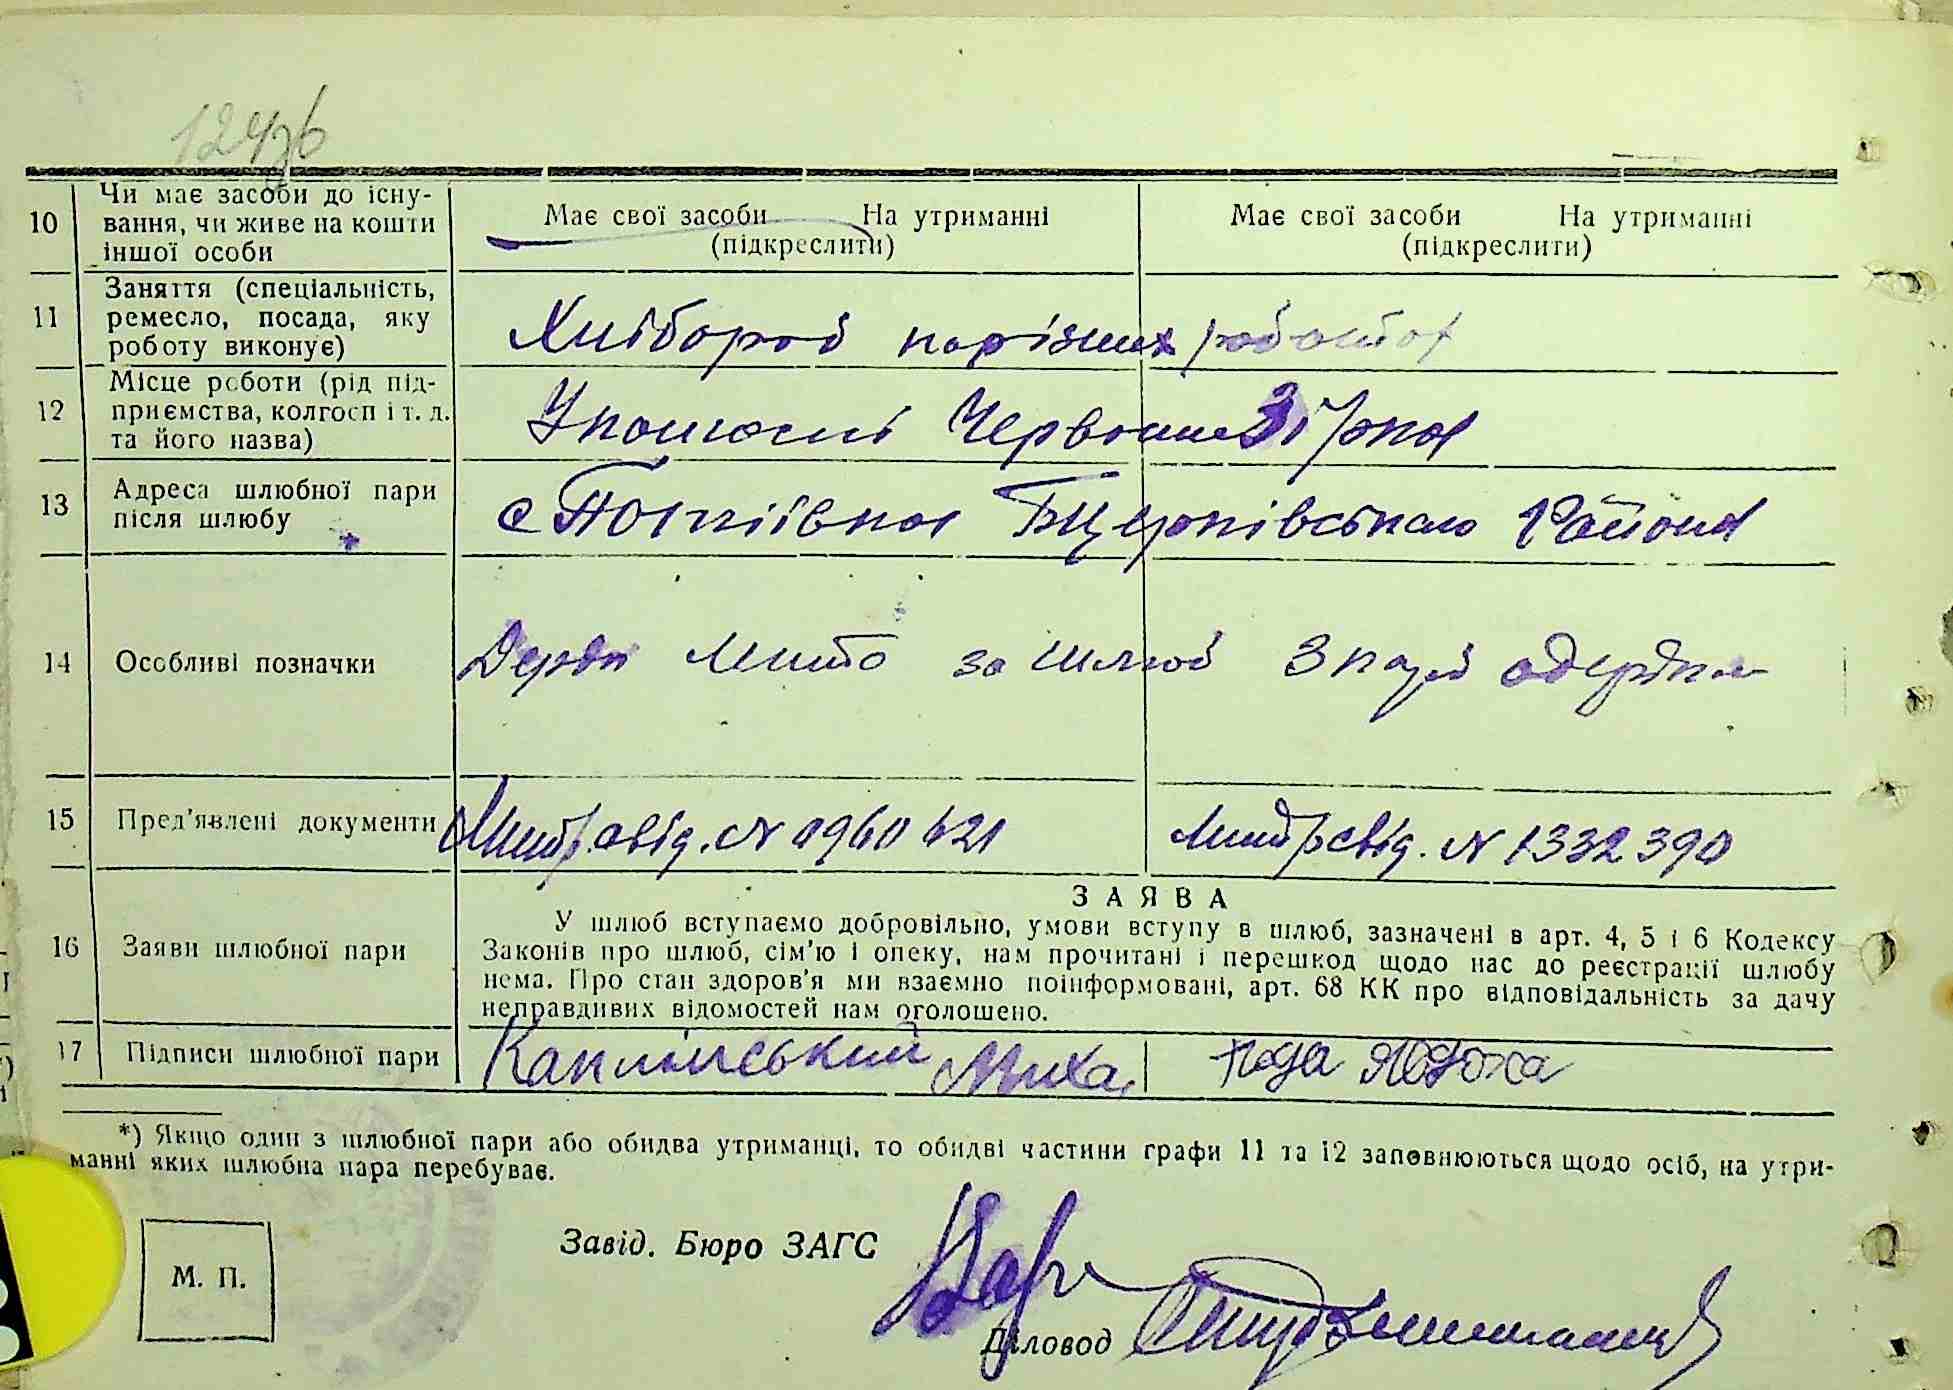 124зв
10 Чи має засоби до існу-
вання, чи живе на кошти
іншої особи
Має свої засоби На утриманні
(підкреслити)
Має свої засоби На утриманні
(підкреслити)
11 Заняття (спеціальність,
ремесло, посада, яку
роботу виконує)
Хлібороб на різних роботах
12 Місце роботи (рід під-
приємства, колгосп і т. д.
та його назва)
У колгоспі Червона Зірка
13 Адреса шлюбної пари
після шлюбу
с Району
14 Особливі позначки
Держ Мито за шлюб 3 карб одержано
15 Пред'явлені документи
свід. N 1332390
16 Заяви шлюбної пари
ЗАЯВА
У шлюб вступаємо добровільно, умови вступу в шлюб, зазначені в арт. 4, 5 і 6 Кодексу
Законів про шлюб, сім'ю і опеку, нам прочитані і перешкод щодо нас до реєстрації шлюбу
нема. Про стан здоров'я ми взаємно поінформовані, арт. 68 КК про відповідальність за дачу
неправдивих відомостей нам оголошено.
17 Підписи шлюбної пари
Миха
*) Якщо один з шлюбної пари або обидва утриманці, то обидві частини графи 11 та 12 заповнюються щодо осіб, на утри-
манні яких шлюбна пара перебуває.
М. П.
Завід. Бюро ЗАГС
Діловод